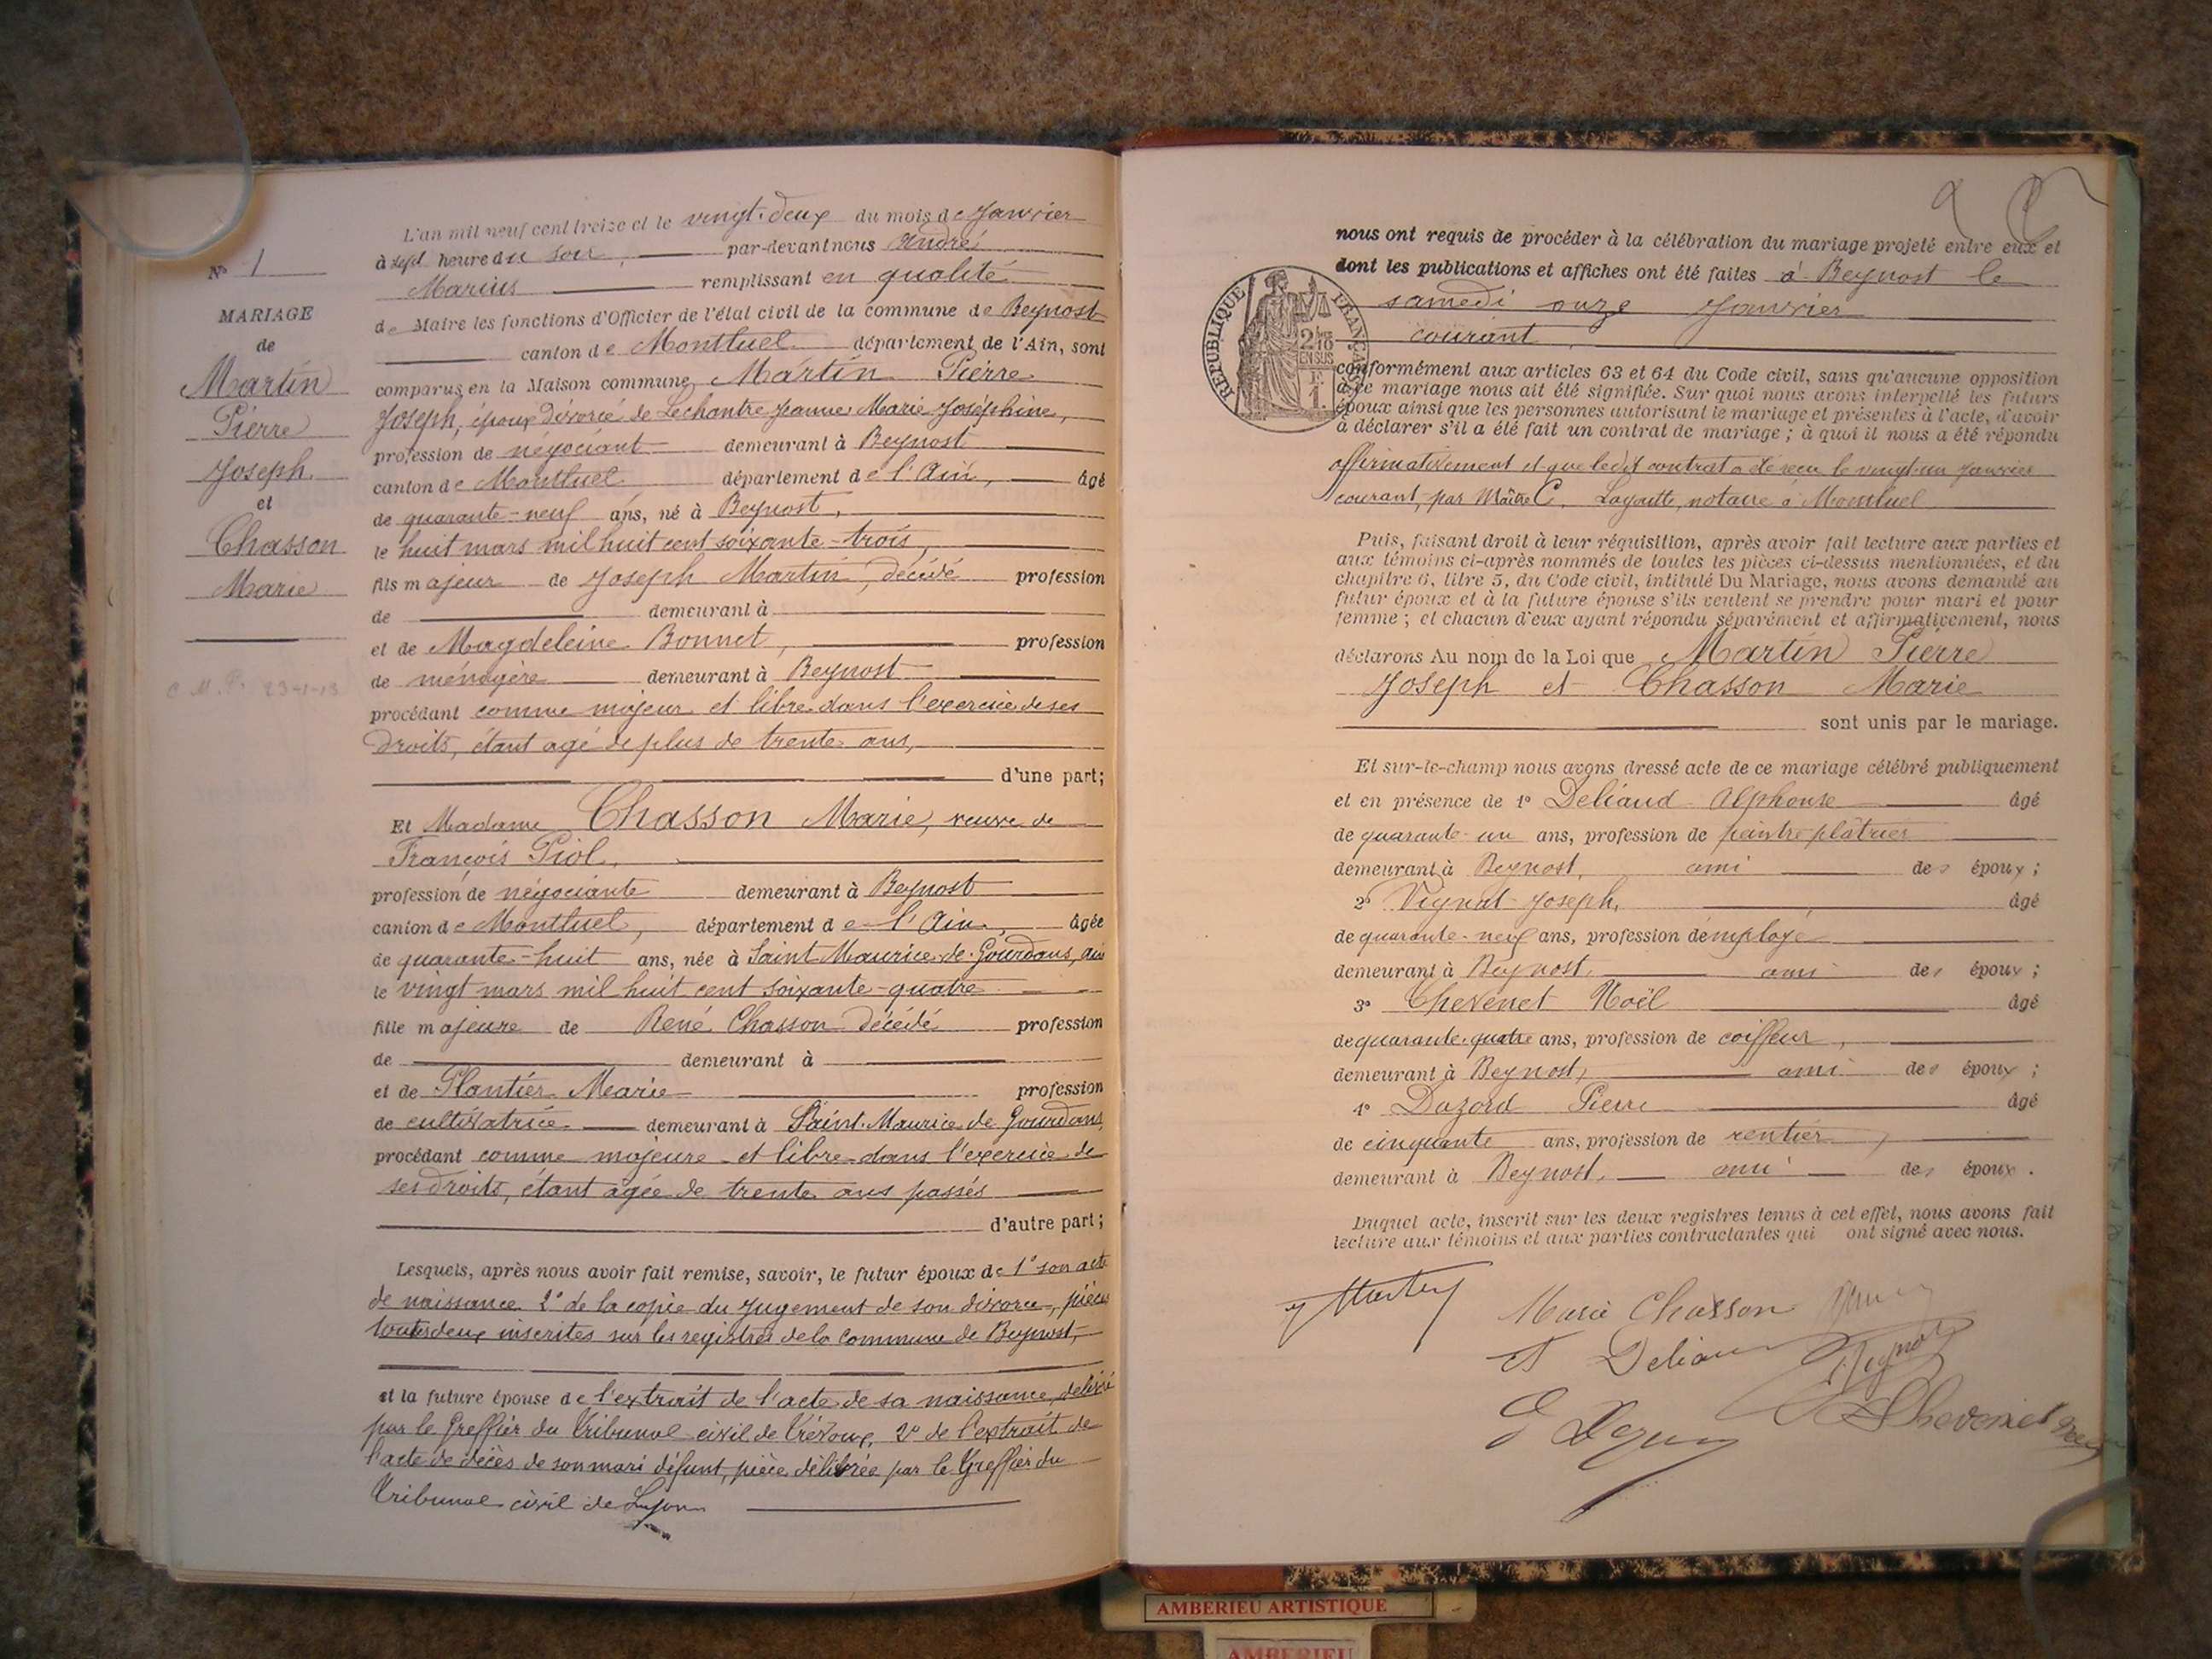 N° 1
MARIAGE
de
Martin
Pierre
Joseph.
et
Chasson
Marie
C. M. P. 23-1-13
L'an mil neuf cent treize et le vingt-deux du mois de Janvier
à sept heure du soir, par-devant nous André
Marius remplissant en qualité
de Maire les fonctions d'Officier de l'état civil de la commune de Beynost
canton de Montluel département de l'Ain, sont
comparus en la Maison commune, Martin Pierre
Joseph, époux divorcé de Lechantre Jeanne Marie Joséphine,
profession de négociant demeurant à Beynost
canton de Montluel département de l'Ain, âgé
de quarante-neuf ans, né à Beynost,
le huit mars mil huit cent soixante-trois,
fils majeur de Joseph Martin, décédé profession
de demeurant à
et de Magdeleine Bonnet, profession
de ménagère demeurant à Beynost
procédant comme majeur et libre dans l'exercice de ses
droits, étant agé de plus de trente ans,
d'une part;
Et Madame Chasson Marie, veuve de
François Piol,
profession de négociante demeurant à Beynost
canton de Montluel, département de l'Ain, âgée
de quarante-huit ans, née à Saint Maurice-de-Gourdans, Ain
le vingt mars mil huit cent soixante-quatre
fille majeure de René Chasson décédé profession
de demeurant à
et de Plantier Marie profession
de cultivatrice demeurant à Saint-Maurice de Gourdans,
procédant comme majeure et libre dans l'exercice de
ses droits, étant agée de trente ans passés
d'autre part;
Lesquels, après nous avoir fait remise, savoir, le futur époux de 1° son acte
de naissance 2° de la copie du jugement de son divorce, pièces
toutes deux inscrites sur les registres de la commune de Beynost,
et la future épouse de l'extrait de l'acte de sa naissance, délivré
par le Greffier du Tribunal civil de Trévoux, 2° de l'extrait de
l'acte de décès de son mari défunt, pièce délivrée par le Greffier du
Tribunal civil de Lyon
nous ont requis de procéder à la célébration du mariage projeté entre eux et
dont les publications et affiches ont été faites à Beynost le
samedi onze Janvier
courant
RÉPUBLIQUE FRANÇAISE
2/10
EN SUS
1
conformément aux articles 63 et 64 du Code civil, sans qu'aucune opposition
à ce mariage nous ait été signifiée. Sur quoi nous avons interpellé les futurs
époux ainsi que les personnes autorisant le mariage et présentes à l'acte, d'avoir
à déclarer s'il a été fait un contrat de mariage; à quoi il nous a été répondu
affirmativement et que ledit contrat a été reçu le vingt-un janvier
courant, par Maître C. notaire à Montluel
Puis, faisant droit à leur réquisition, après avoir fait lecture aux parties et
aux témoins ci-après nommés de toutes les pièces ci-dessus mentionnées, et du
chapitre 6, titre 5, du Code civil, intitulé Du Mariage, nous avons demandé au
futur époux et à la future épouse s'ils veulent se prendre pour mari et pour
femme; et chacun d'eux ayant répondu séparément et affirmativement, nous
déclarons Au nom de la Loi que Martin Pierre
Joseph et Chasson Marie
sont unis par le mariage.
Et sur-le-champ nous avons dressé acte de ce mariage célébré publiquement
et en présence de 1° Deliaud Alphonse âgé
de quarante-un ans, profession de peintre plâtrier
demeurant à Beynost, ami des époux;
2° Vignat Joseph, âgé
de quarante-neuf ans, profession d'employé
demeurant à Beynost, ami des époux;
3° Chevenet Noël âgé
de quarante-quatre ans, profession de coiffeur,
demeurant à Beynost, ami des époux;
4° Dazord Pierre âgé
de cinquante ans, profession de rentier,
demeurant à Beynost, ami des époux.
Duquel acte, inscrit sur les deux registres tenus à cet effet, nous avons fait
lecture aux témoins et aux parties contractantes qui ont signé avec nous.
Marie Chasson
Chevenet
AMBERIEU ARTISTIQUE
AMBERIEU